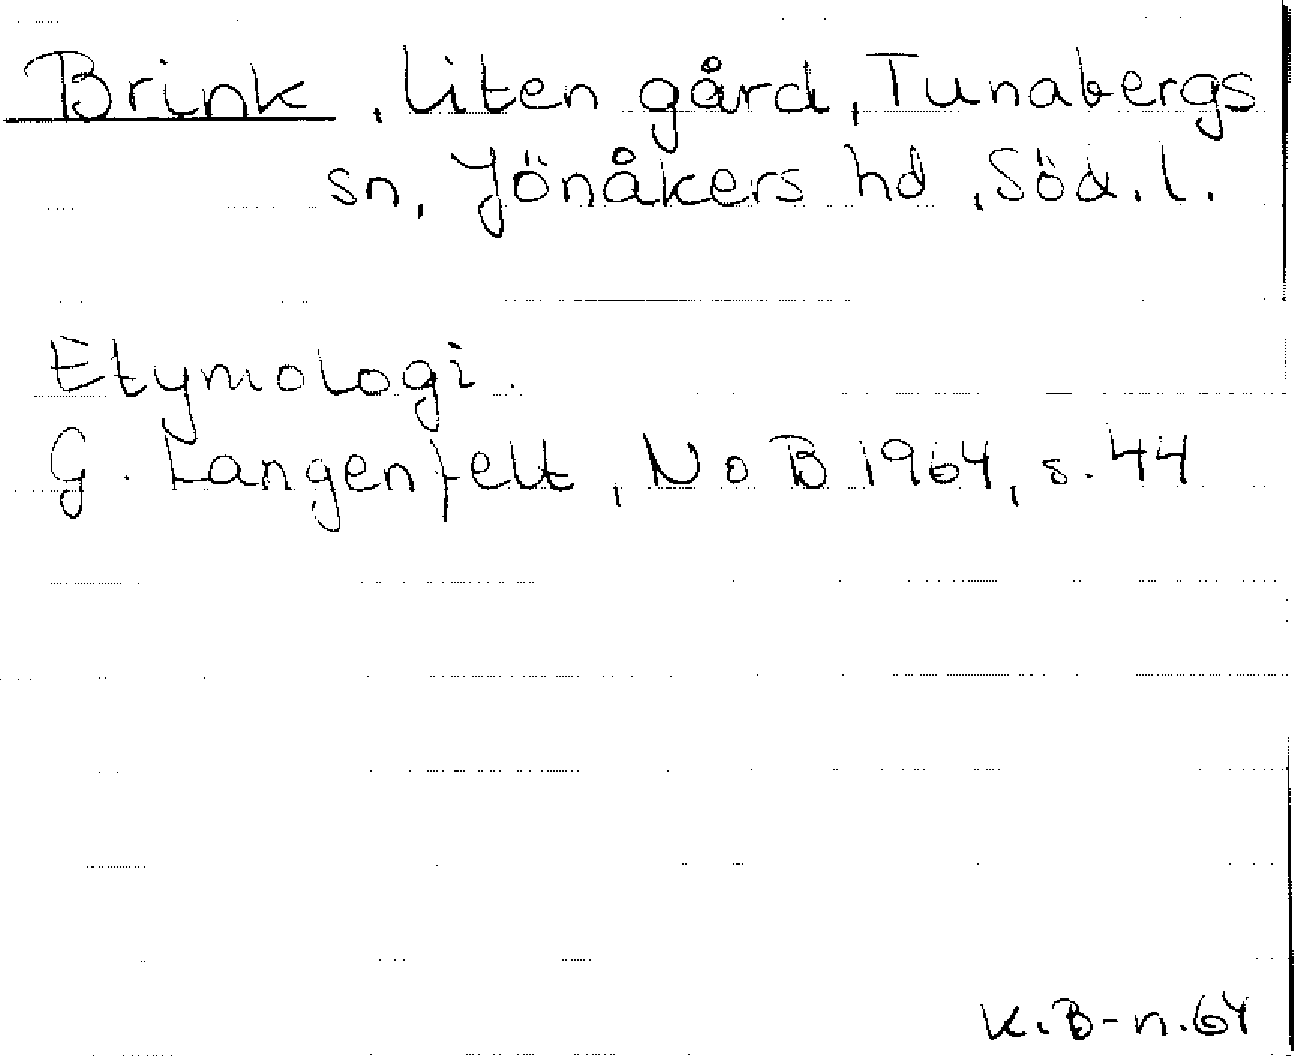 Brink, liten gård, Tunabergs
sn, Jönåkers hd, Söd.l.
Etymologi.
G. Langenfelt, NoB 1964, s. 44
K.B-n.64